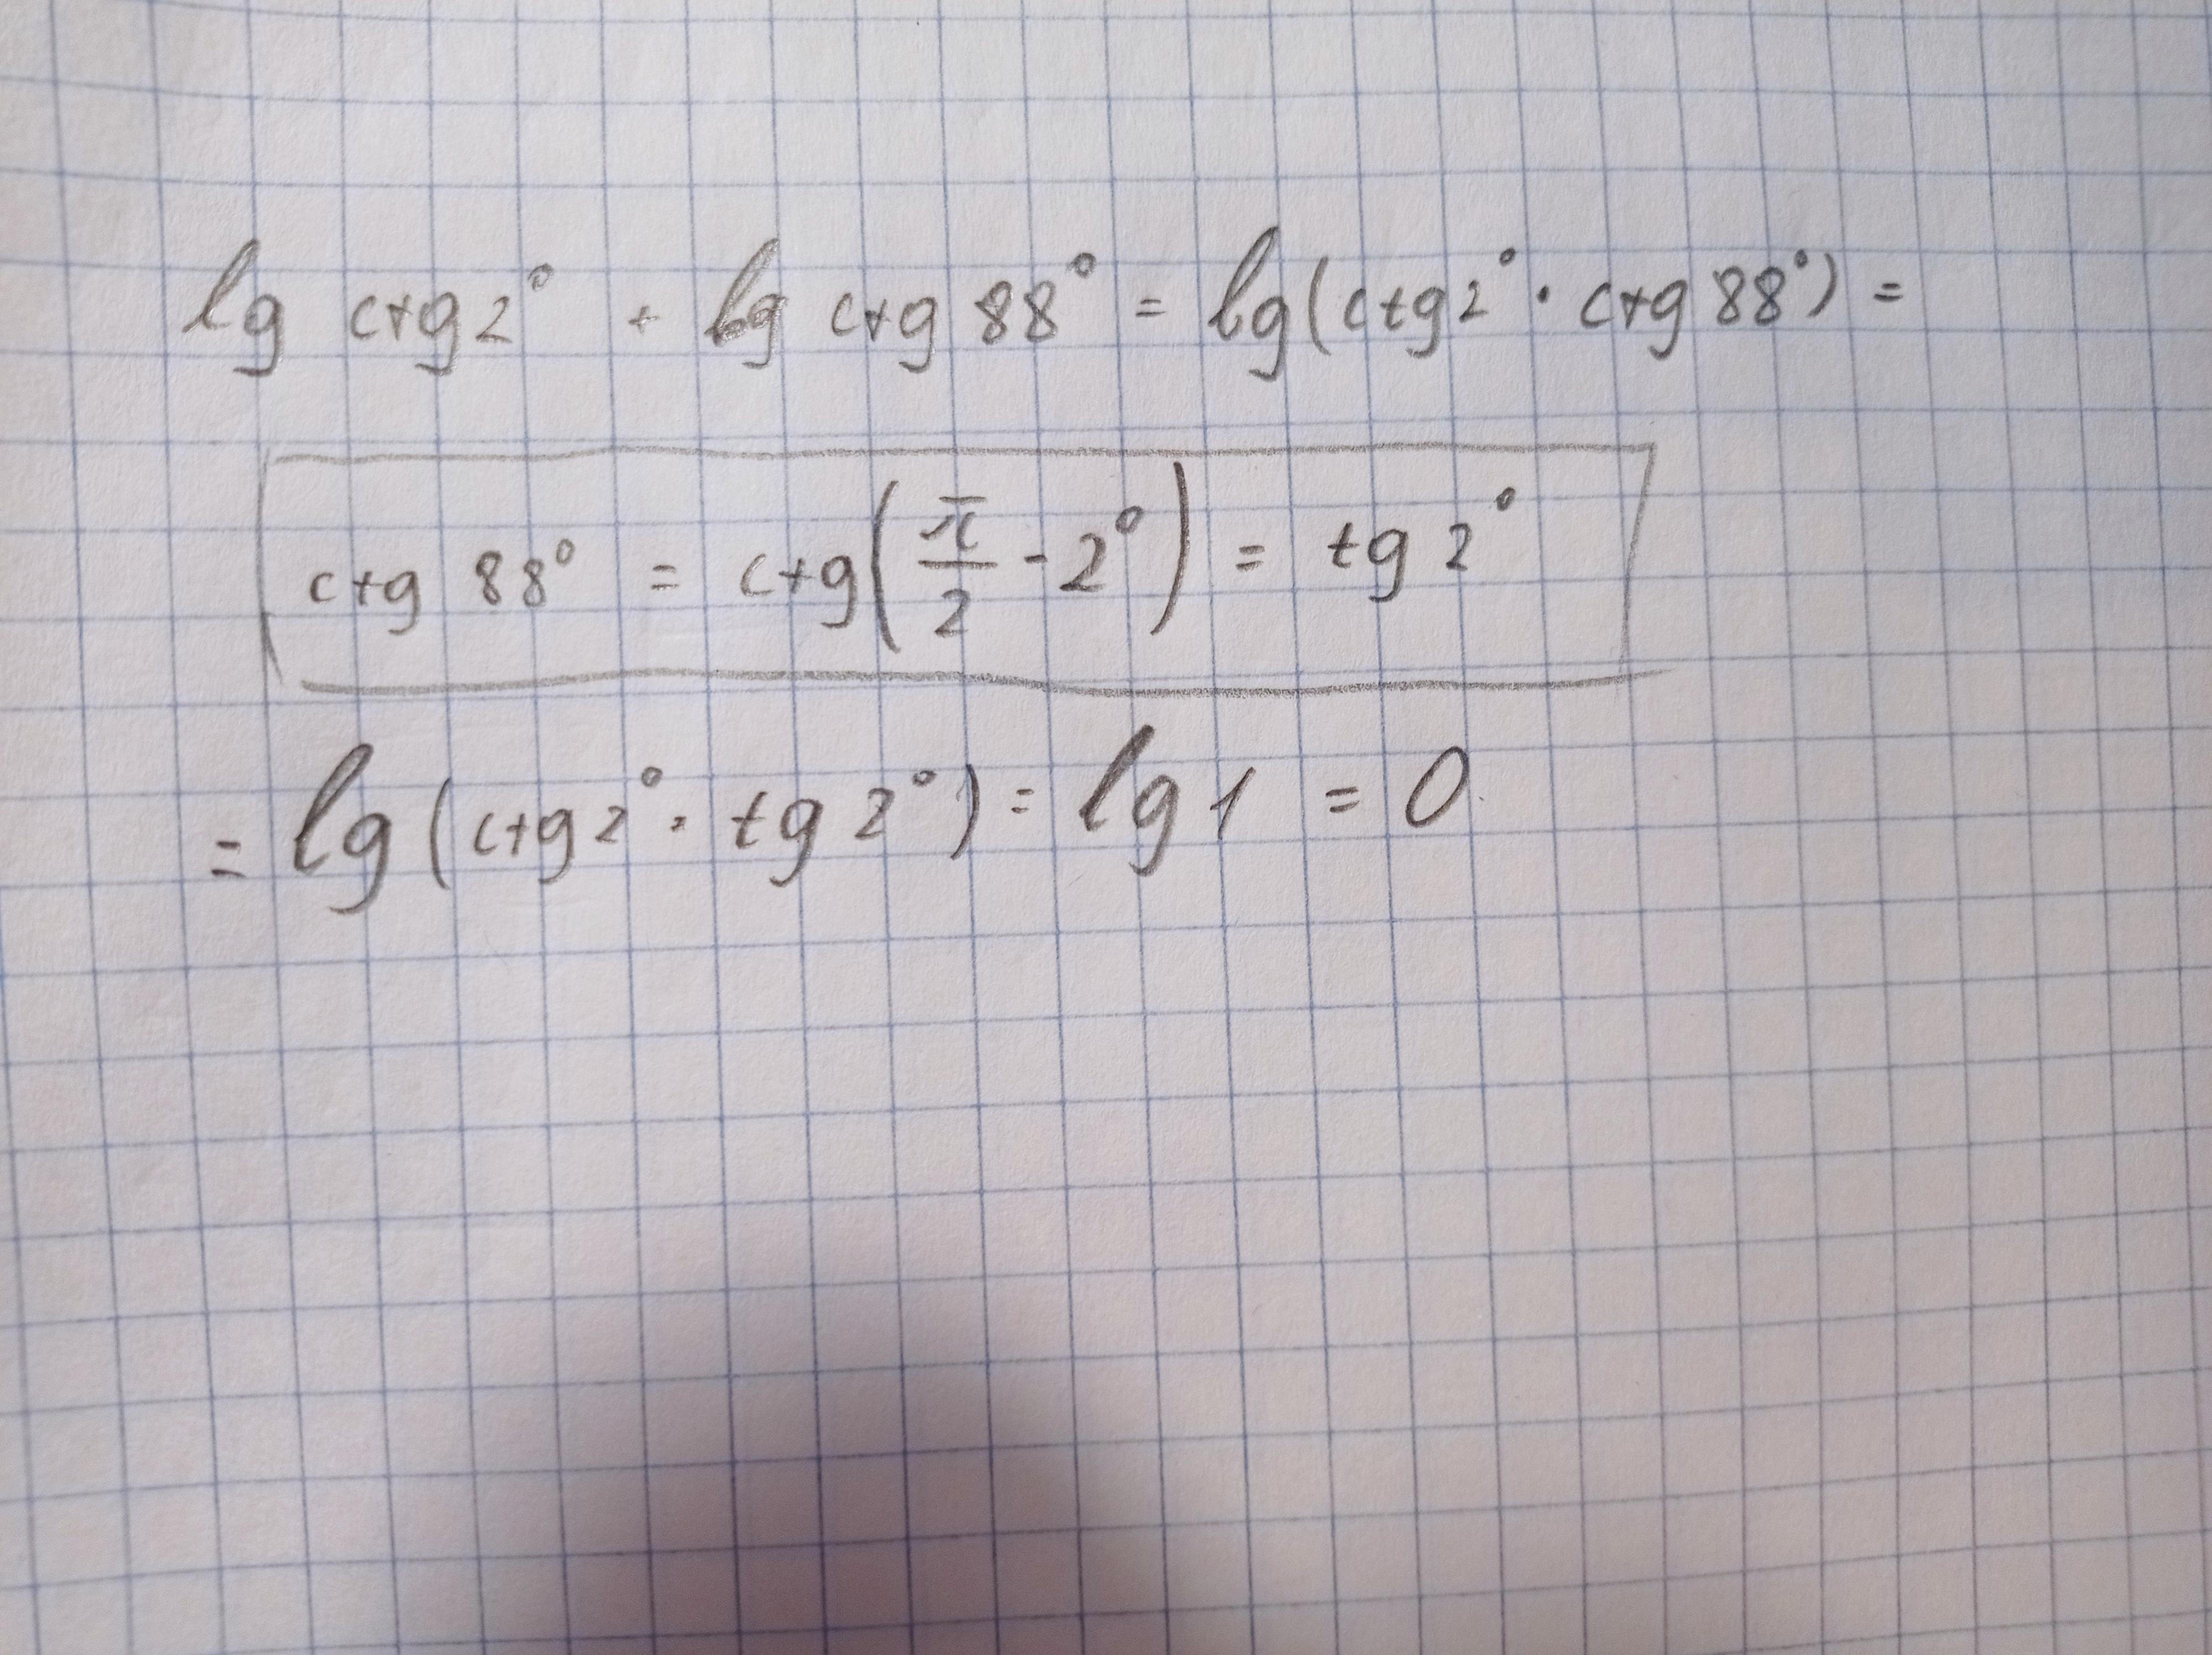 lg ctg 2° + lg ctg 88° = lg(ctg 2° · ctg 88°) =
ctg 88° = ctg(π/2 - 2°) = tg 2°
= lg(ctg 2° · tg 2°) = lg 1 = 0